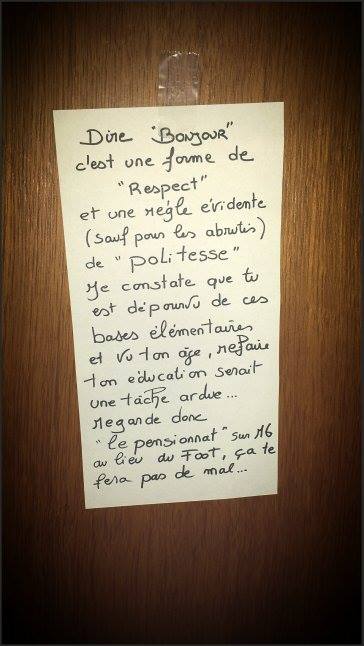 Dire "BONJOUR"
c'est une forme de
"Respect"
et une règle évidente
(sauf pour les abrutis)
de "politesse"
Je constate que tu
est dépourvu de ces
bases élémentaires
et vu ton âge, refaire
ton éducation serait
une tâche ardue...
Regarde donc
"le pensionnat" sur M6
au lieu du Foot, ça te
fera pas de mal...